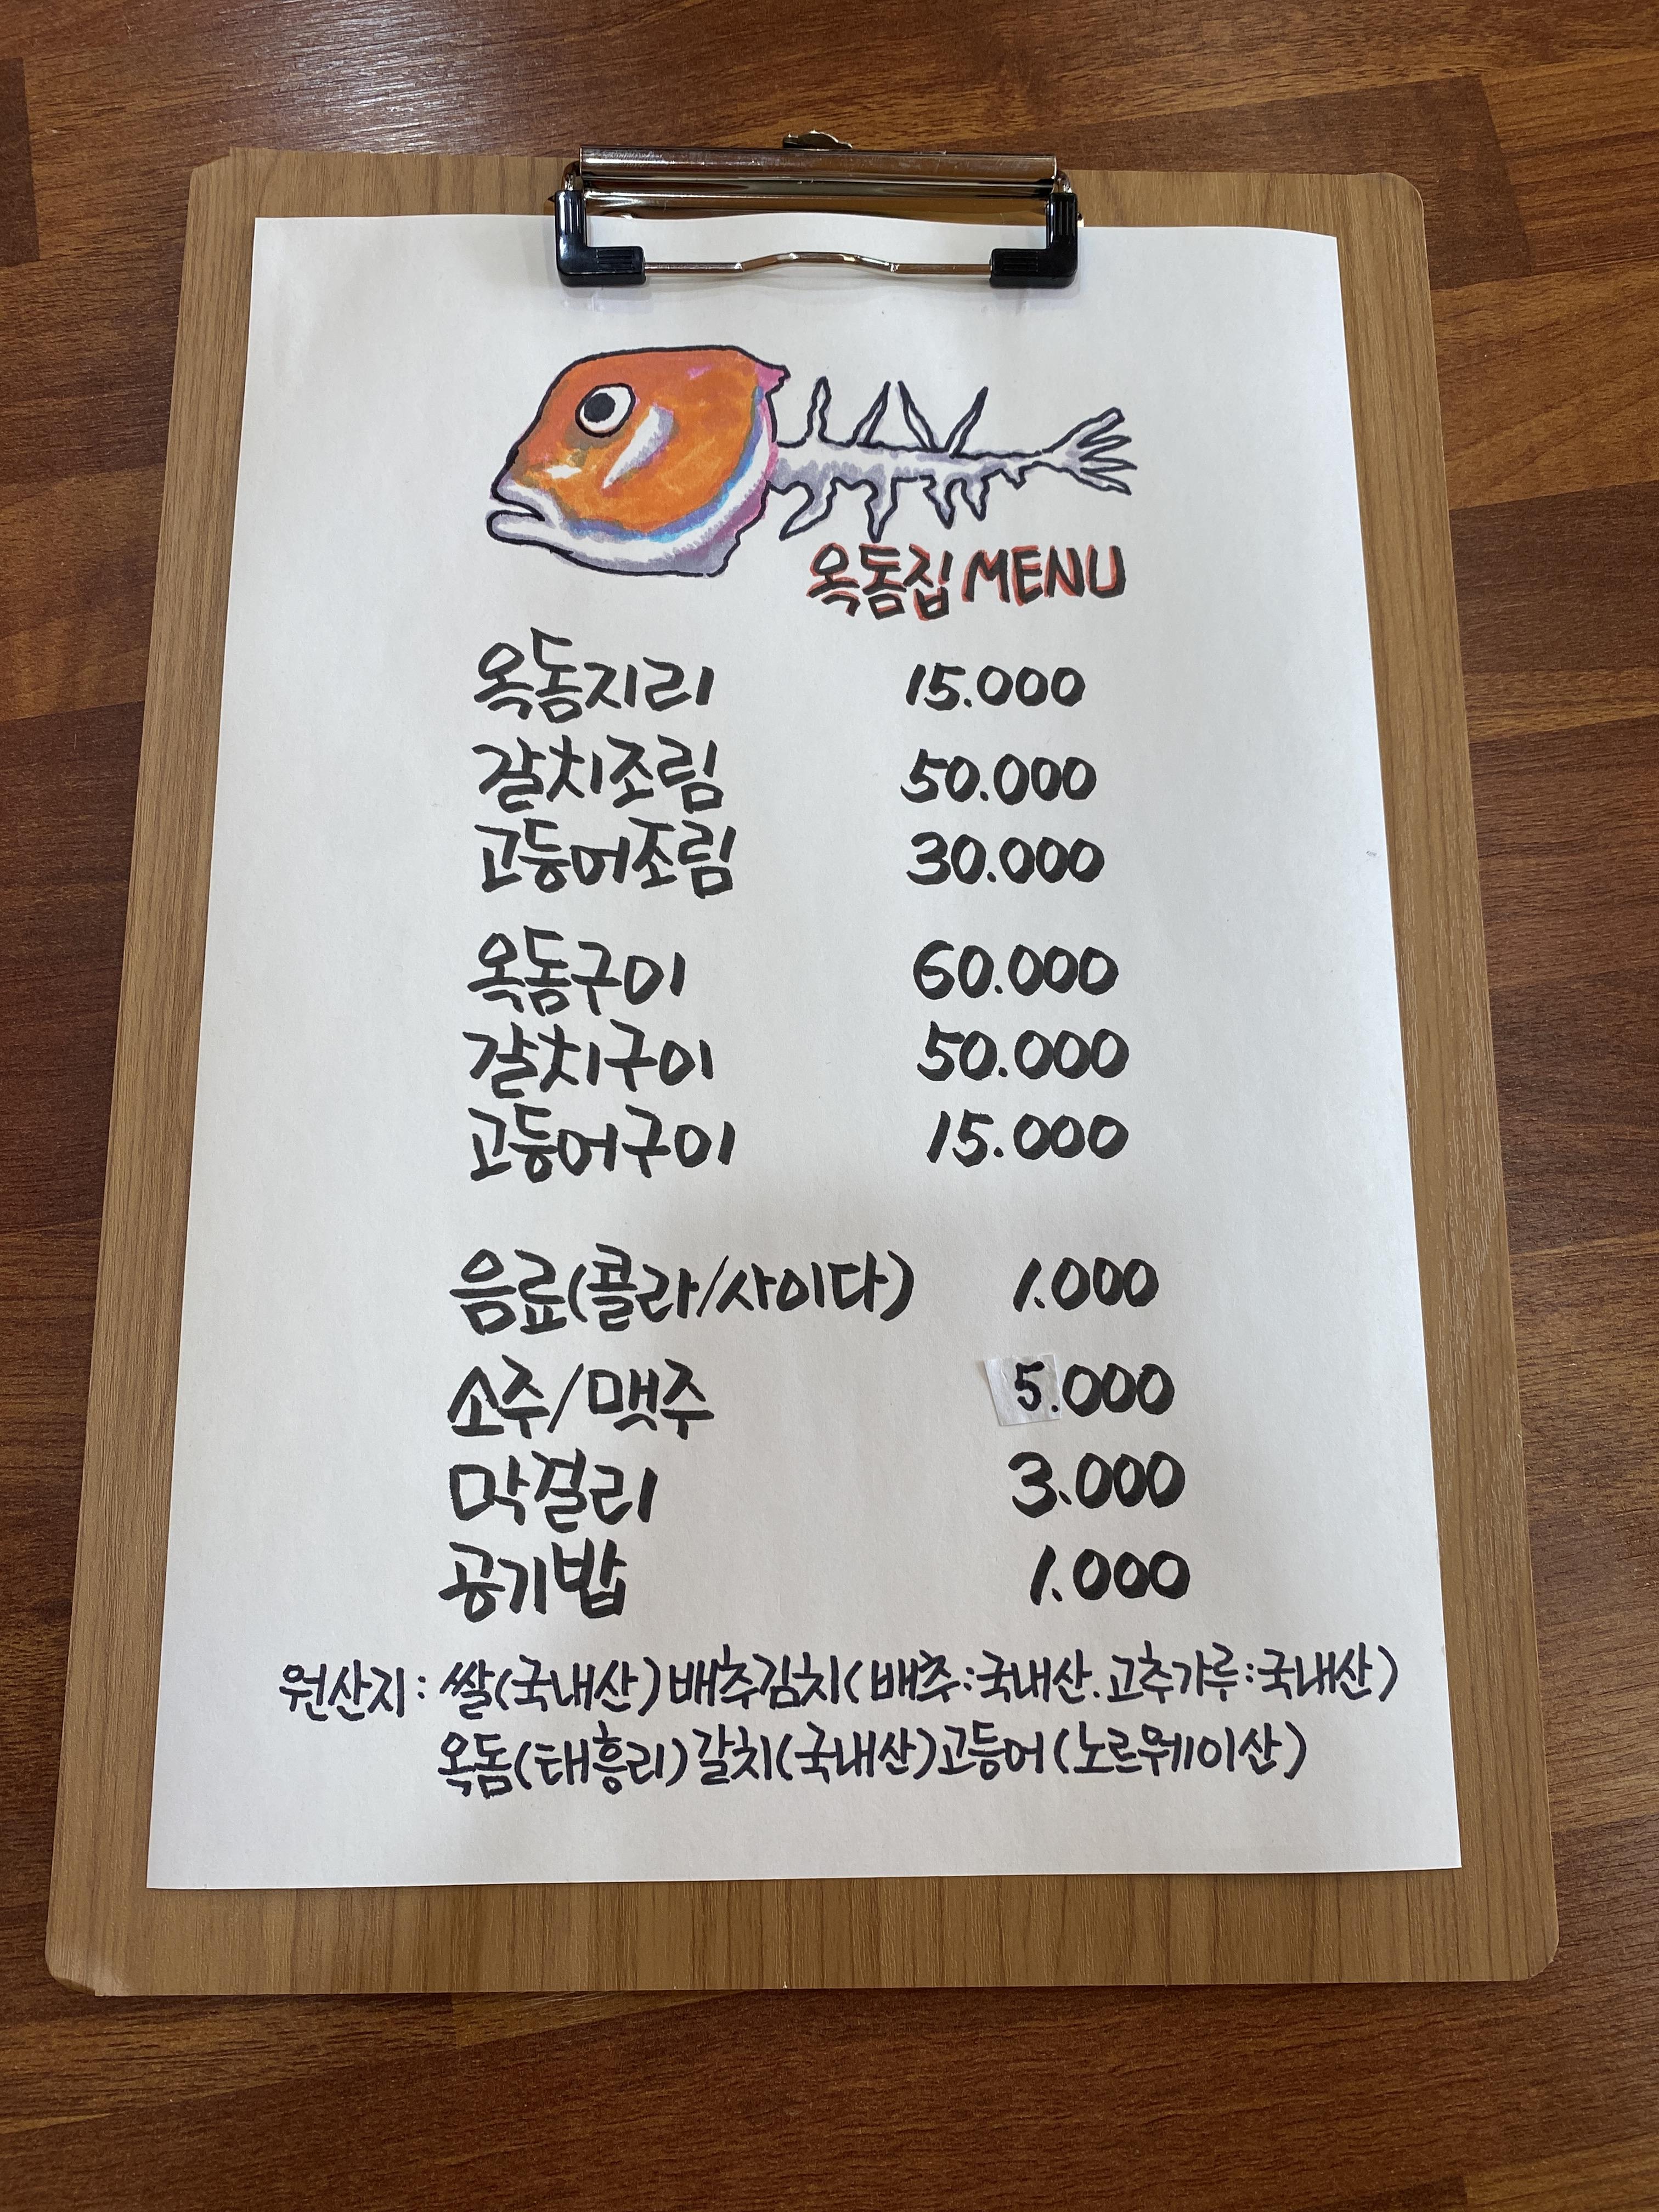 옥돔집 MENU
옥돔지리 15.000
갈치조림 50.000
고등어조림 30.000
옥돔구이 60.000
갈치구이 50.000
고등어구이 15.000
음료(콜라/사이다) 1.000
소주/맥주 5.000
막걸리 3.000
공기밥 1.000
원산지: 쌀(국내산) 배추김치(배추:국내산.고추가루:국내산)
옥돔(태흥리) 갈치(국내산) 고등어(노르웨이산)